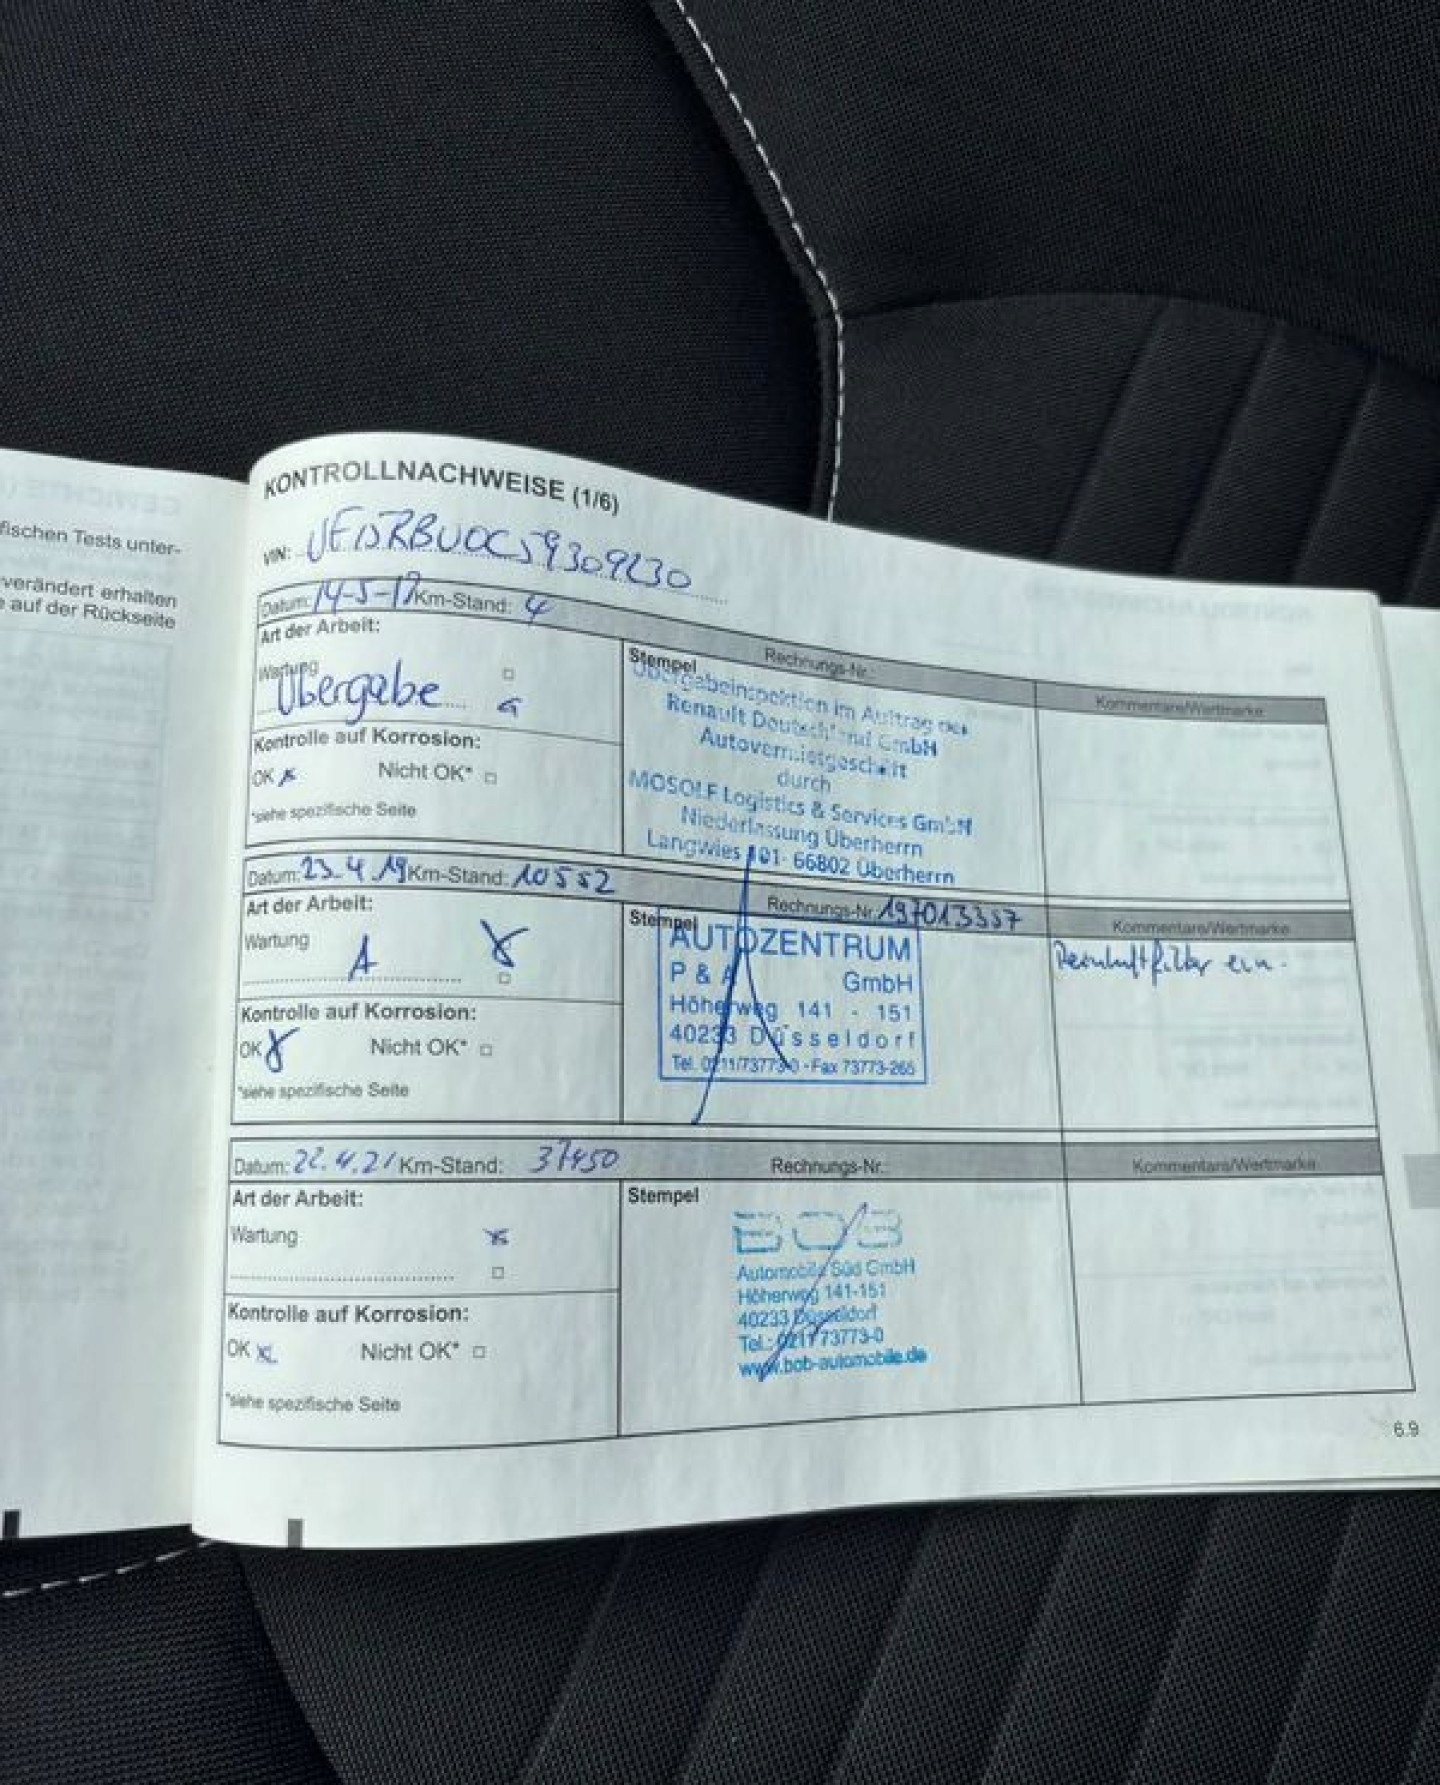 fischen Tests unter-
verändert erhalten
auf der Rückseite
KONTROLLNACHWEISE (1/6)
VIN:
Datum: 14-5-17 Km-Stand: 4
Art der Arbeit:
Wartung
Übergabe
Kontrolle auf Korrosion:
OK Nicht OK*
*siehe spezifische Seite
Stempel Rechnungs-Nr.:
Kommentare/Wertmarke
Übergabeinspektion im Auftrag der
Renault Deutschland GmbH
Autovermietgeschäft
durch
MOSOLF Logistics & Services GmbH
Niederlassung Überherrn
Langwies 101- 66802 Überherrn
Datum: 23.4.19 Km-Stand: 10552
Art der Arbeit:
Wartung
A
Kontrolle auf Korrosion:
OK Nicht OK*
*siehe spezifische Seite
Stempel Rechnungs-Nr. 197013357
Kommentare/Wertmarke
AUTOZENTRUM
P & A GmbH
Höherweg 141 - 151
40233 Düsseldorf
Tel. 0211/73773-0 - Fax 73773-265
Datum: 22.4.21 Km-Stand: 37450
Art der Arbeit:
Wartung
Kontrolle auf Korrosion:
OK Nicht OK*
*siehe spezifische Seite
Rechnungs-Nr.:
Stempel
Kommentare/Wertmarke
BOB
Automobile Süd GmbH
Höherweg 141-151
40233 Düsseldorf
Tel.: 0211 73773-0
www.bob-automobile.de
6.9